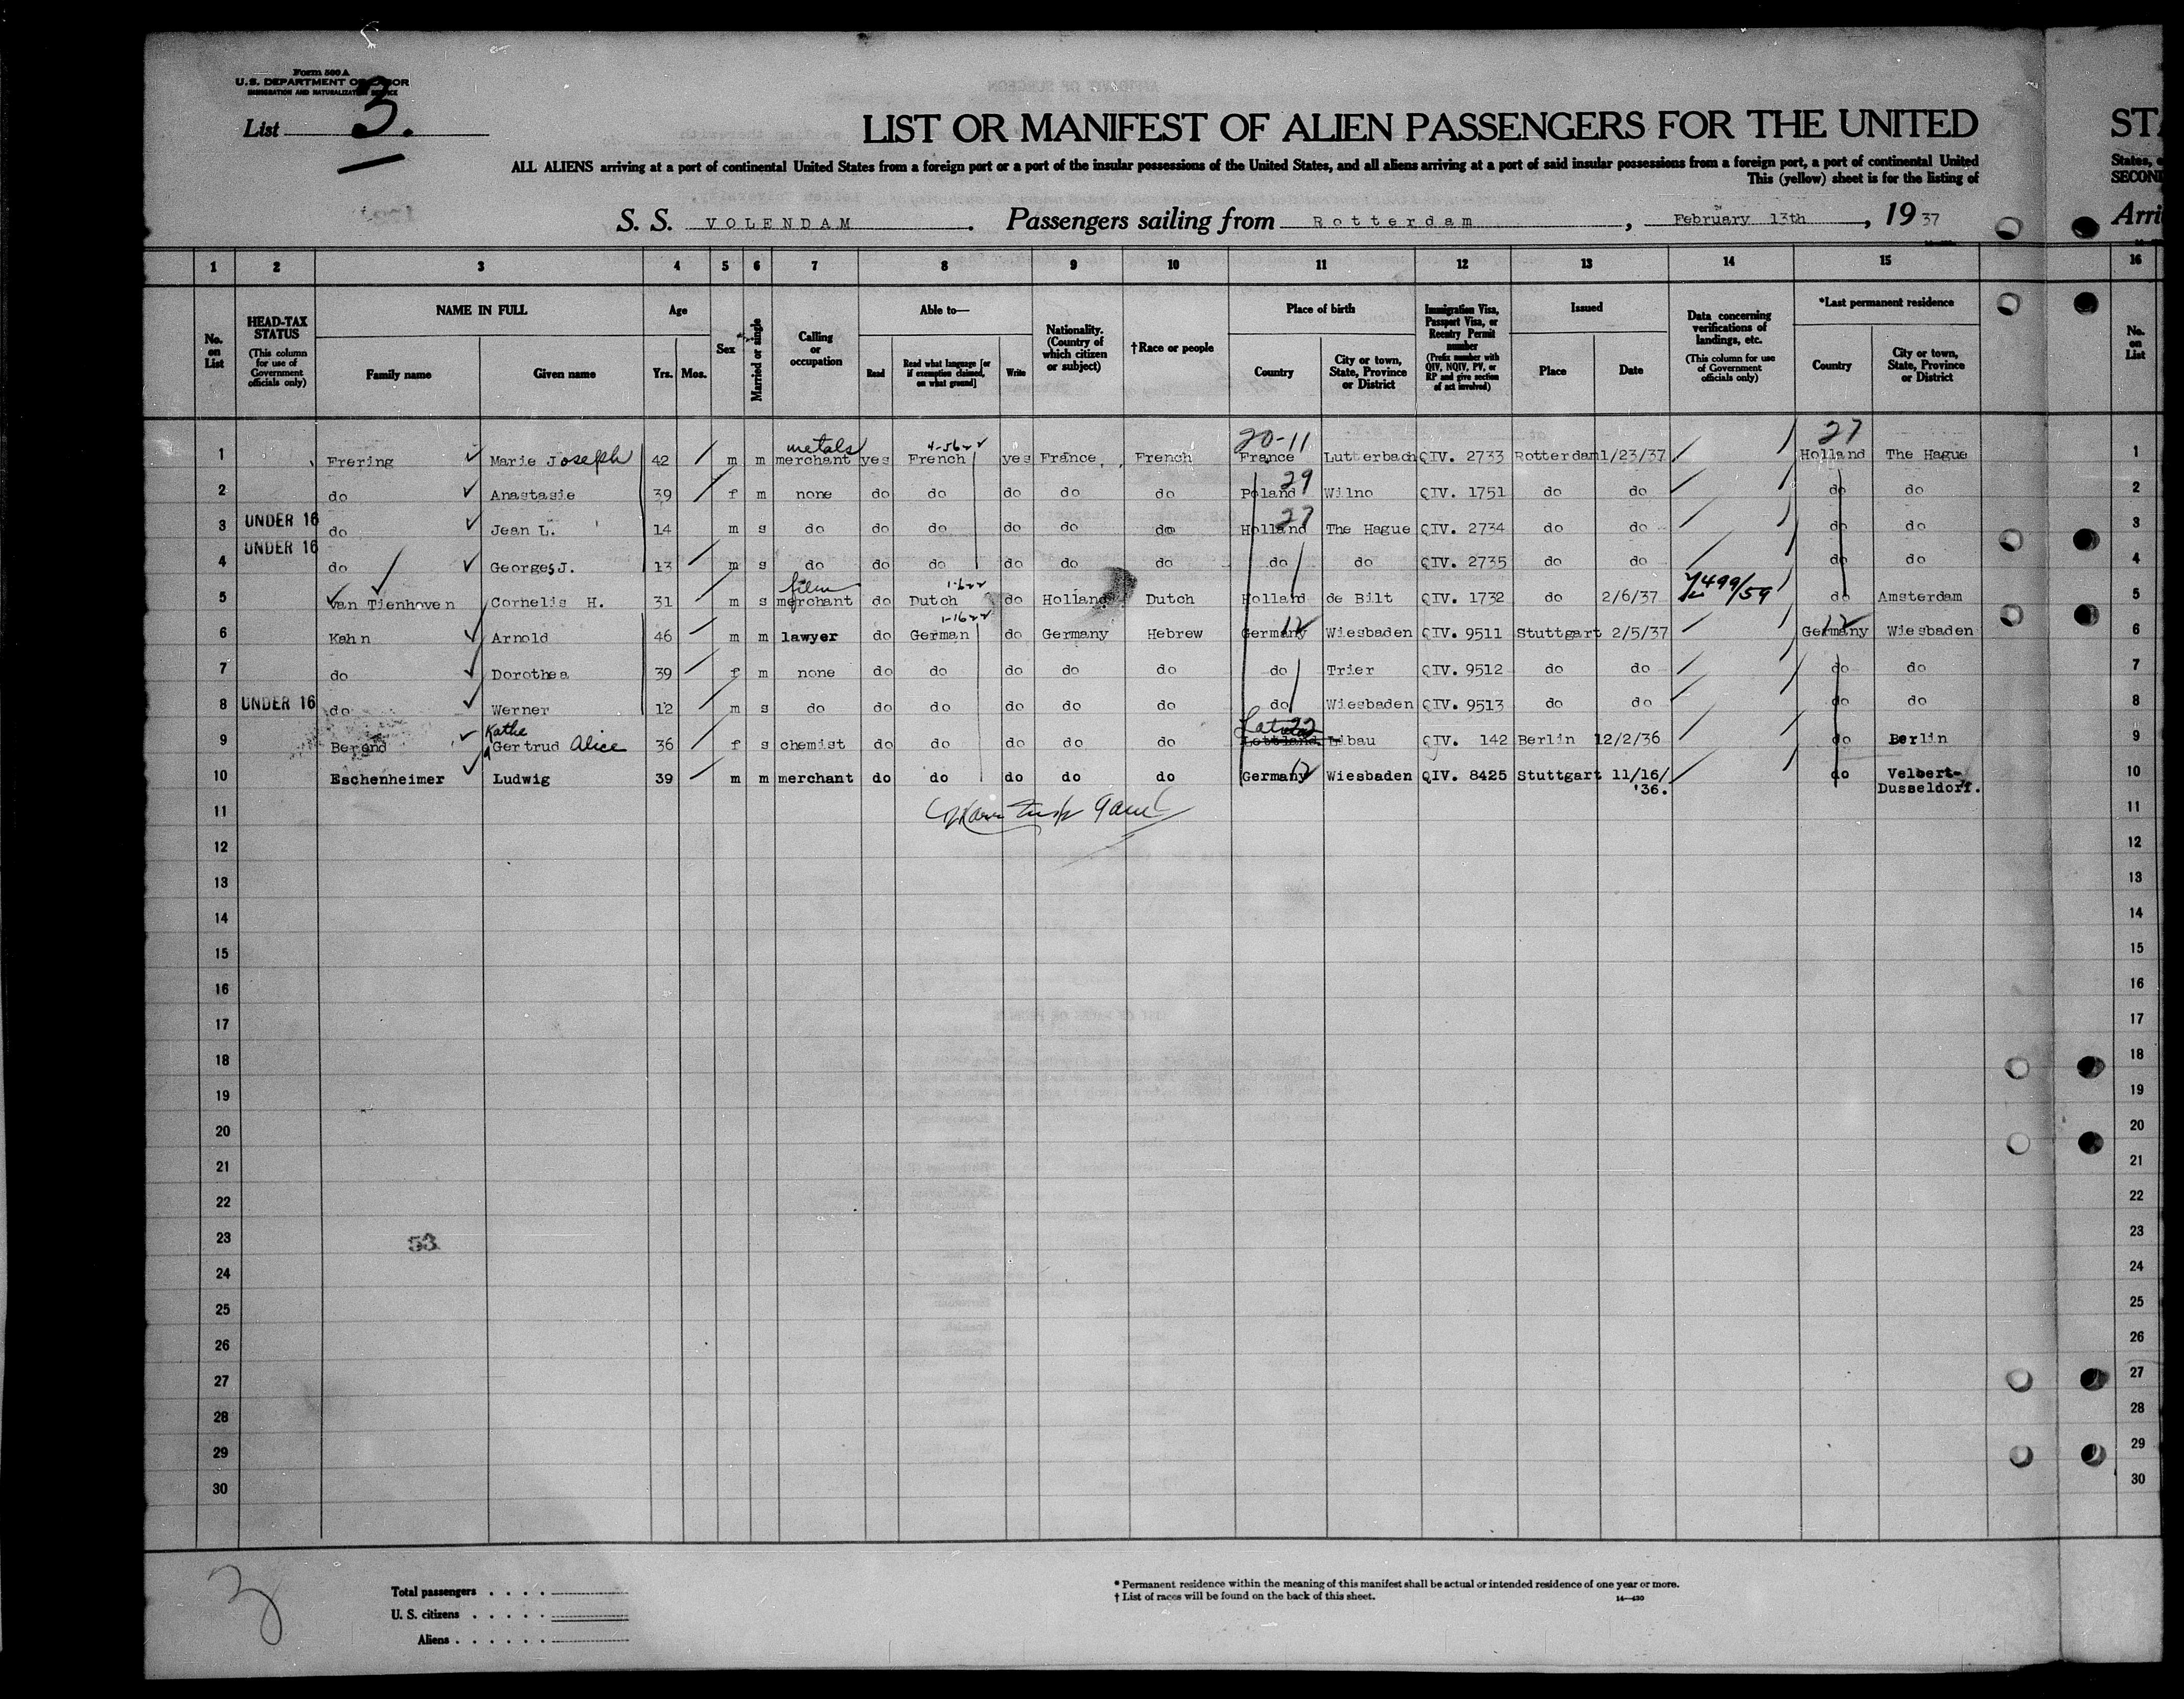 Form 500 A
U. S. DEPARTMENT OF LABOR
IMMIGRATION AND NATURALIZATION SERVICE
List 3.
LIST OR MANIFEST OF ALIEN PASSENGERS FOR THE UNITED
STA
ALL ALIENS arriving at a port of continental United States from a foreign port or a port of the insular possessions of the United States, and all aliens arriving at a port of said insular possessions from a foreign port, a port of continental United
States, o
This (yellow) sheet is for the listing of
SECOND
S. S. VOLENDAM. Passengers sailing from Rotterdam, February 13th, 19 37
Arri
1 2 3 4 5 6 7 8 9 10 11 12 13 14 15 16
No. on List
HEAD-TAX STATUS (This column for use of Government officials only)
NAME IN FULL
Family name Given name
Age
Yrs. Mos.
Sex
Married or single
Calling or occupation
Able to—
Read
Read what language [or if exemption claimed, on what ground]
Write
Nationality. (Country of which citizen or subject)
†Race or people
Place of birth
Country
City or town, State, Province or District
Immigration Visa, Passport Visa, or Reentry Permit number (Prefix number with QIV, NQIV, PV, or RP and give section of act involved)
Issued
Place Date
Data concerning verifications of landings, etc. (This column for use of Government officials only)
*Last permanent residence
Country
City or town, State, Province or District
No. on List
metals 4-5622 20-11 27
1 Frering Marie Joseph 42 m m merchant yes French yes France French France Lutterbach QIV. 2733 Rotterdam 1/23/37 Holland The Hague 1
29
2 do Anastasie 39 f m none do do do do do Poland Wilno QIV. 1751 do do do do 2
27
3 UNDER 16 do Jean L. 14 m s do do do do do do Holland The Hague QIV. 2734 do do do do 3
4 UNDER 16 do Georges J. 13 m s do do do do do do do do QIV. 2735 do do do do 4
film 1-622
5 van Tienhoven Cornelis H. 31 m s merchant do Dutch do Holland Dutch Holland de Bilt QIV. 1732 do 2/6/37 499/59 do Amsterdam 5
1-1622 12 12
6 Kahn Arnold 46 m m lawyer do German do Germany Hebrew Germany Wiesbaden QIV. 9511 Stuttgart 2/5/37 Germany Wiesbaden 6
7 do Dorothea 39 f m none do do do do do do Trier QIV. 9512 do do do do 7
8 UNDER 16 do Werner 12 m s do do do do do do do Wiesbaden QIV. 9513 do do do do 8
Kathe Latvia 22
9 Berend Gertrud Alice 36 f s chemist do do do do do Lettland Libau QIV. 142 Berlin 12/2/36 do Berlin 9
12
10 Eschenheimer Ludwig 39 m m merchant do do do do do Germany Wiesbaden QIV. 8425 Stuttgart 11/16/ do Velbert-
'36. Dusseldorf. 10
11 11
12 12
13 13
14 14
15 15
16 16
17 17
18 18
19 19
20 20
21 21
22 22
23 53 23
24 24
25 25
26 26
27 27
28 28
29 29
30 30
3
Total passengers . . . .
U. S. citizens . . . . .
Aliens . . . . . .
* Permanent residence within the meaning of this manifest shall be actual or intended residence of one year or more.
† List of races will be found on the back of this sheet.
14—430